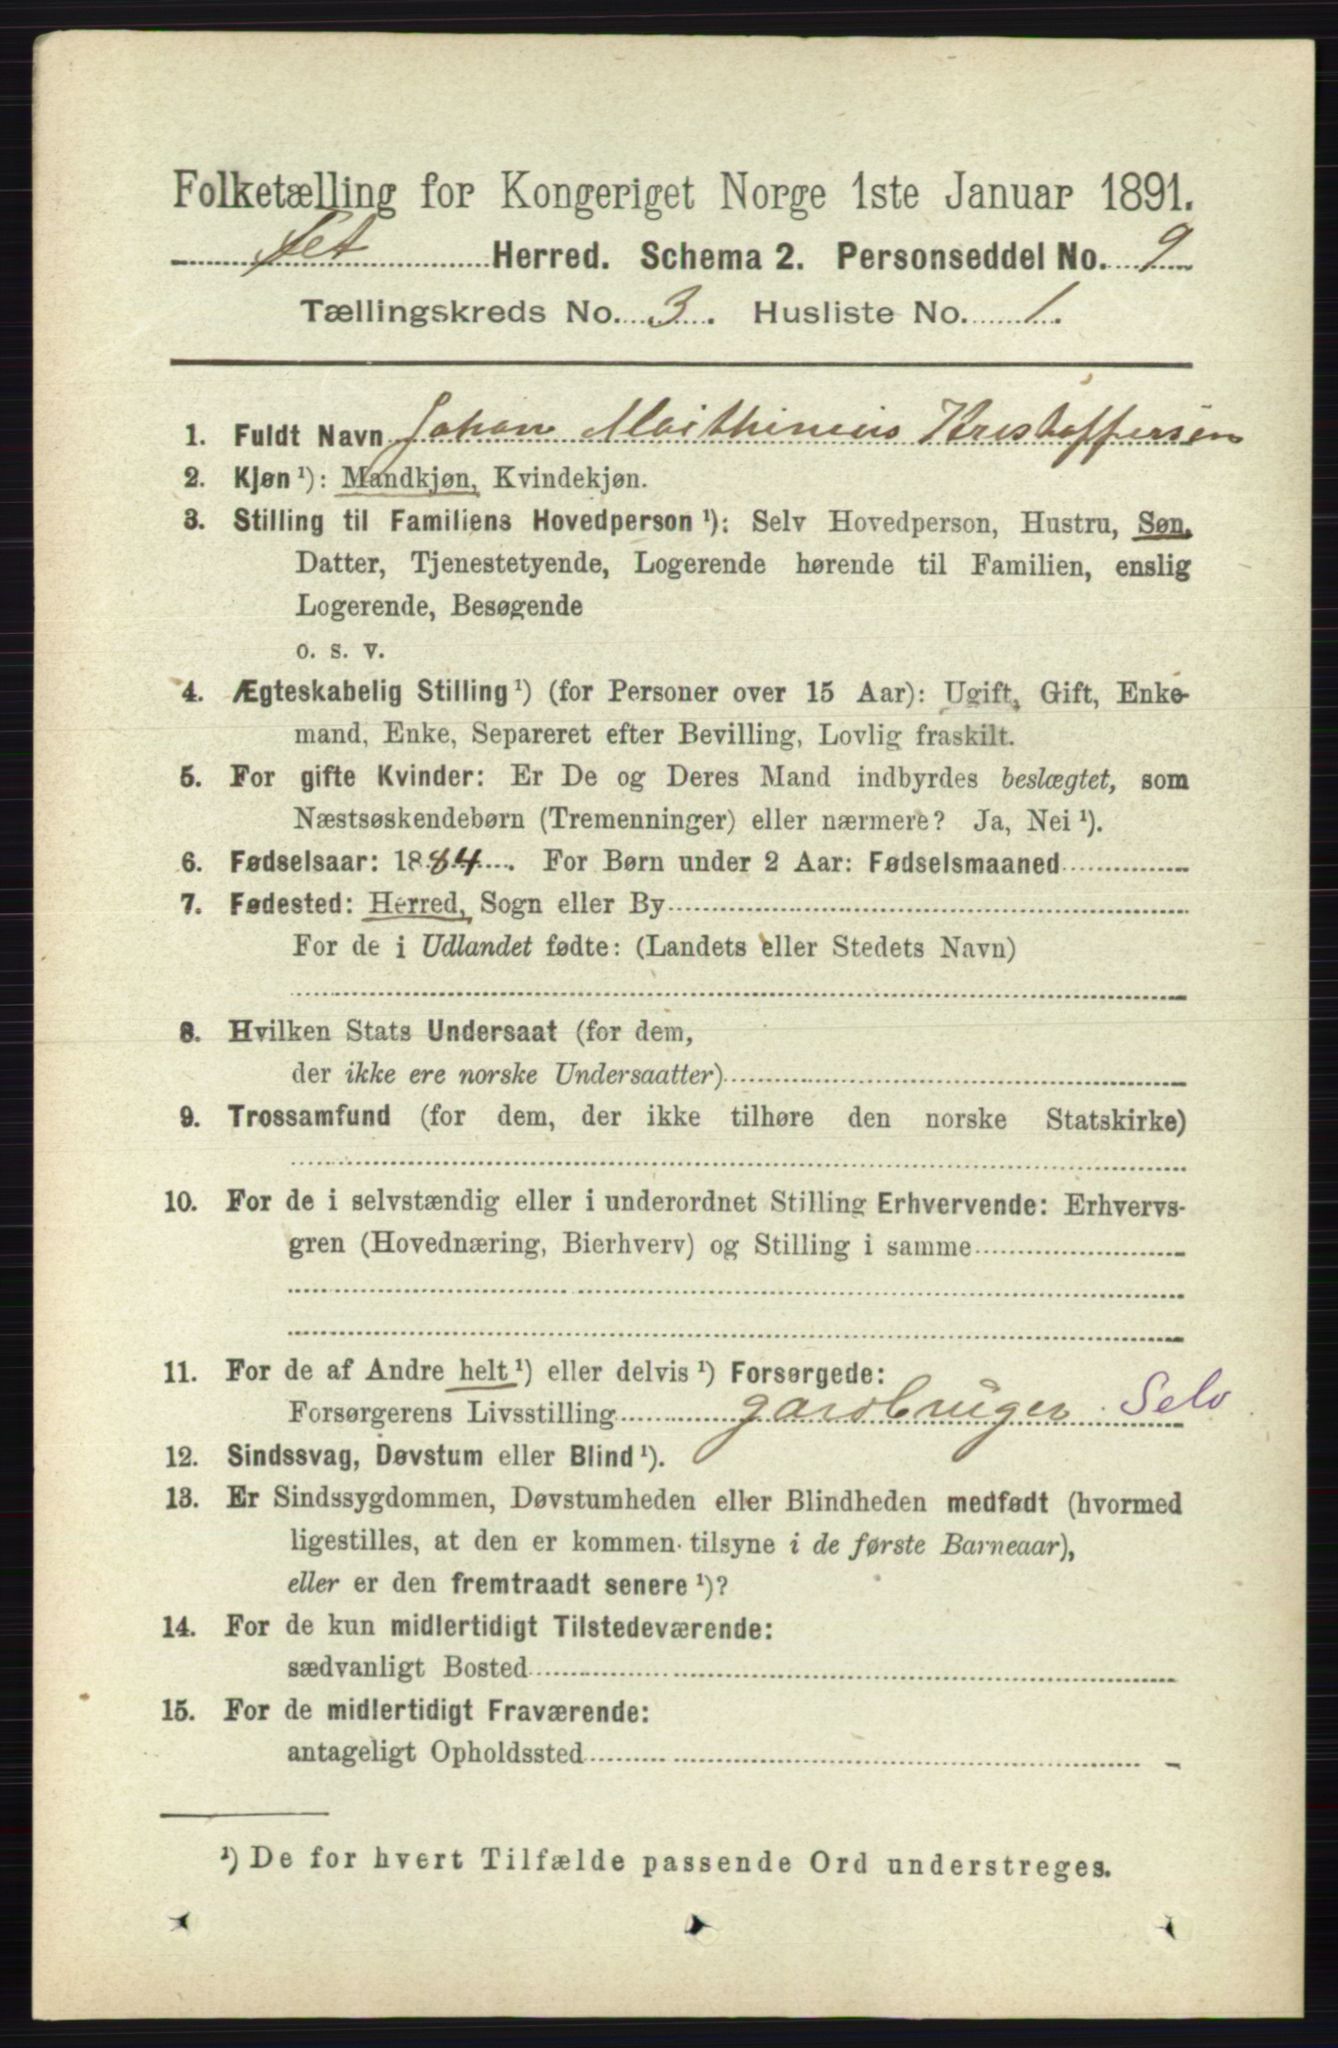 Folketælling for Kongeriget Norge 1ste Januar 1891.
Fet Herred. Schema 2. Personseddel No. 9
Tællingskreds No. 3. Husliste No. 1.
1. Fuldt Navn Johan Maithinius Kristoffersen
2. Kjøn ¹): Mandkjøn, Kvindekjøn.
3. Stilling til Familiens Hovedperson ¹): Selv Hovedperson, Hustru, Søn,
Datter, Tjenestetyende, Logerende hørende til Familien, enslig
Logerende, Besøgende
o. s. v.
4. Ægteskabelig Stilling ¹) (for Personer over 15 Aar): Ugift, Gift, Enke-
mand, Enke, Separeret efter Bevilling, Lovlig fraskilt.
5. For gifte Kvinder: Er De og Deres Mand indbyrdes beslægtet, som
Næstsøskendebørn (Tremenninger) eller nærmere? Ja, Nei ¹).
6. Fødselsaar: 1884. For Børn under 2 Aar: Fødselsmaaned
7. Fødested: Herred, Sogn eller By
For de i Udlandet fødte: (Landets eller Stedets Navn)
8. Hvilken Stats Undersaat (for dem,
der ikke ere norske Undersaatter)
9. Trossamfund (for dem, der ikke tilhøre den norske Statskirke)
10. For de i selvstændig eller i underordnet Stilling Erhvervende: Erhvervs-
gren (Hovednæring, Bierhverv) og Stilling i samme
11. For de af Andre helt ¹) eller delvis ¹) Forsørgede:
Forsørgerens Livsstilling gardbruger Selv
12. Sindssvag, Døvstum eller Blind ¹).
13. Er Sindssygdommen, Døvstumheden eller Blindheden medfødt (hvormed
ligestilles, at den er kommen tilsyne i de første Barneaar),
eller er den fremtraadt senere ¹)?
14. For de kun midlertidigt Tilstedeværende:
sædvanligt Bosted
15. For de midlertidigt Fraværende:
antageligt Opholdssted
¹) De for hvert Tilfælde passende Ord understreges.